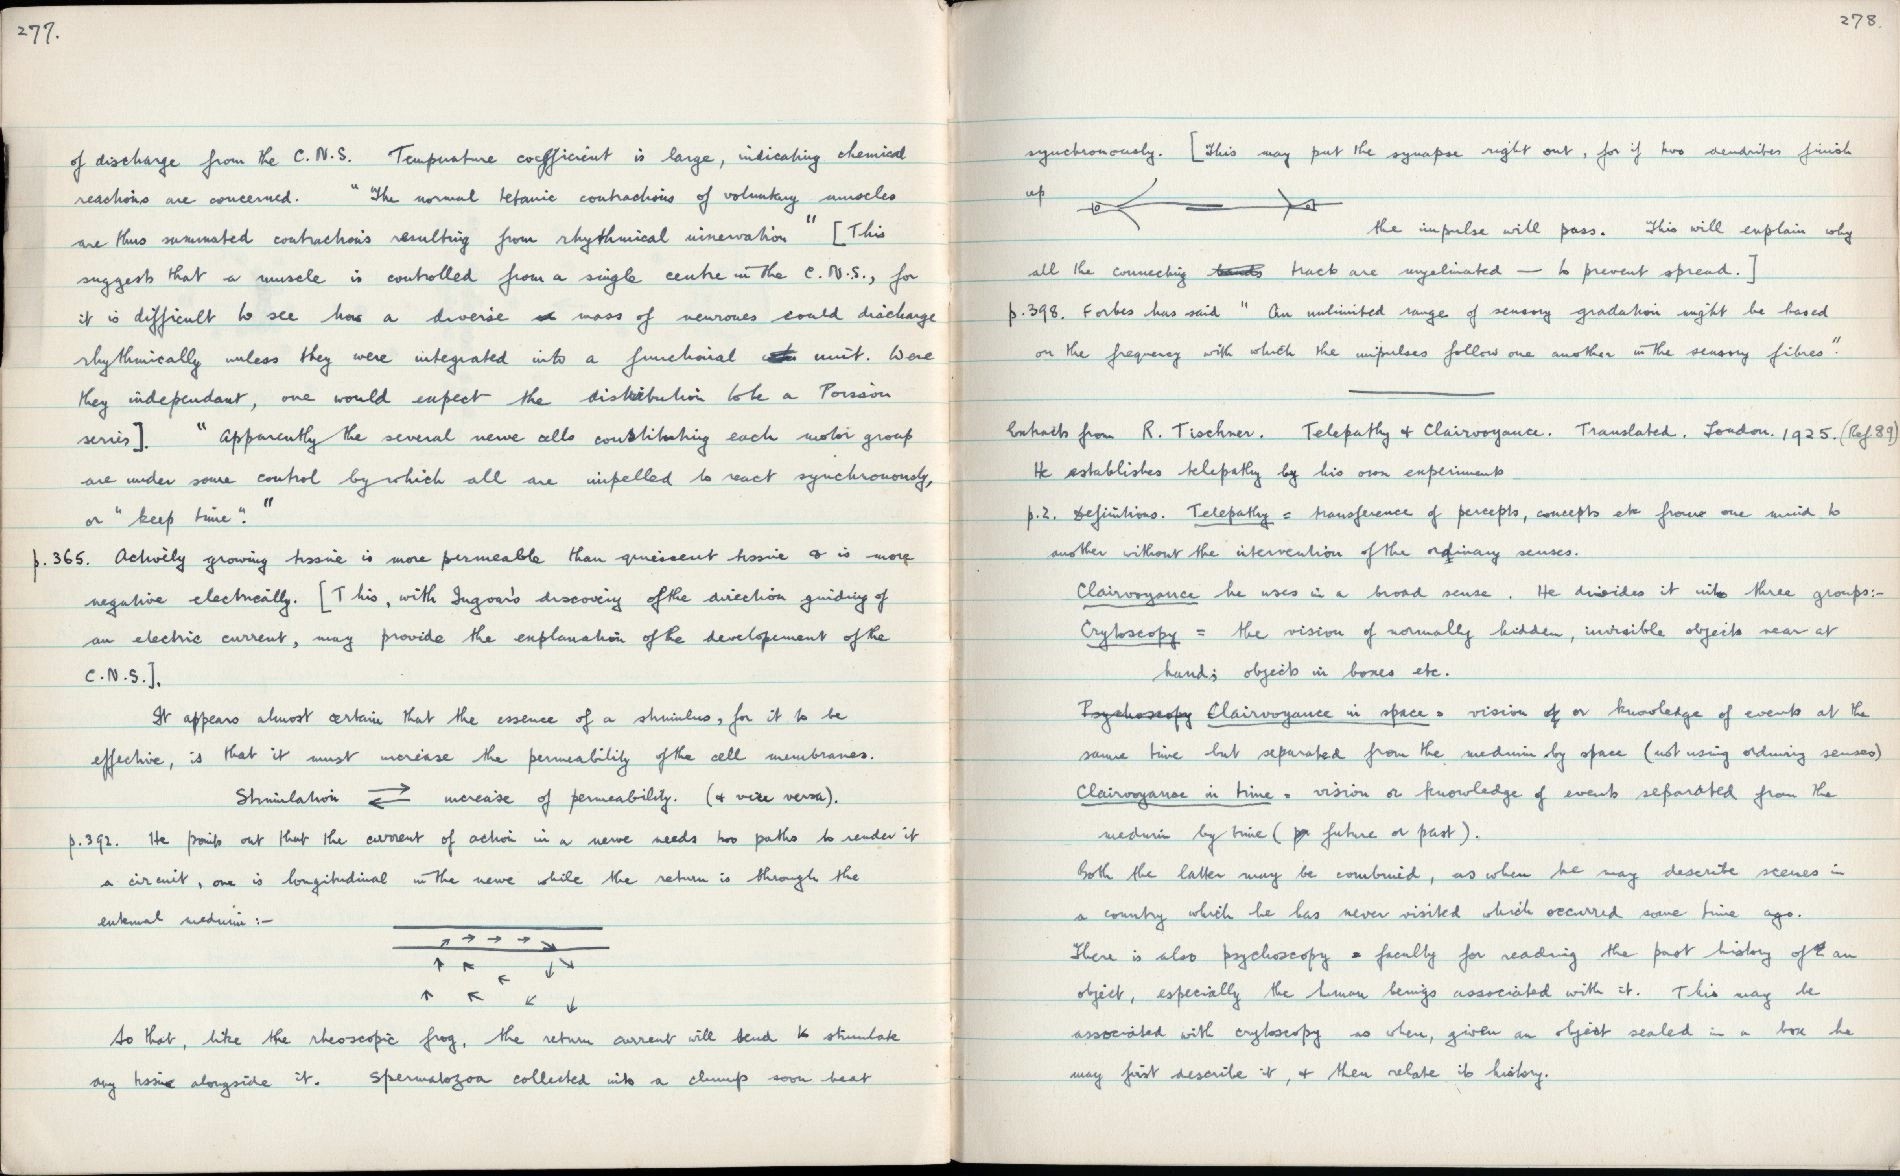 277.
of discharge from the C.N.S. Temperature coefficient is large, indicating chemical
reactions are concerned. "The normal tetanic contractions of voluntary muscles
are thus summated contractions resulting from rhythmical innervation" [This
suggests that a muscle is controlled from a single centre in the C.N.S., for
it is difficult to see how a diverse mass of neurones could discharge
rhythmically unless they were integrated into a functional unit. Were
they independant, one would expect the distribution to be a Poisson
series]. "Apparently the several nerve cells constituting each motor group
are under some control by which all are impelled to react synchronously,
or "keep time"."
p.365. Actively growing tissue is more permeable than quiescent tissue & is more
negative electrically. [This, with Ingvar's discovery of the direction guiding of
an electric current, may provide the explanation of the developement of the
C.N.S.].
It appears almost certain that the essence of a stimulus, for it to be
effective, is that it must increase the permeability of the cell membranes.
Stimulation ⇄ increase of permeability. (& vice versa).
p.392. He points out that the current of action in a nerve needs two paths to render it
a circuit, one is longitudinal in the nerve while the return is through the
external medium:-
So that, like the rheoscopic frog, the return current will tend to stimulate
any tissue alongside it. Spermatozoa collected into a clump soon beat
278.
synchronously. [This may put the synapse right out, for if two dendrites finish
up
the impulse will pass. This will explain why
all the connecting tracts are myelinated — to prevent spread.]
p.398. Forbes has said "An unlimited range of sensory gradation might be based
on the frequency with which the impulses follow one another in the sensory fibres".
Extracts from R. Tischner. Telepathy & Clairvoyance. Translated. London. 1925. (Ref 89)
He establishes telepathy by his own experiments
p.2. Definitions. Telepathy = transference of percepts, concepts etc from one mind to
another without the intervention of the ordinary senses.
Clairvoyance he uses in a broad sense. He divides it into three groups:-
Crytoscopy = the vision of normally hidden, invisible objects near at
hand; objects in boxes etc.
Psychoscopy Clairvoyance in space = vision of or knowledge of events at the
same time but separated from the medium by space (not using ordinary senses)
Clairvoyance in time = vision or knowledge of events separated from the
medium by time ( future or past).
Both the latter may be combined, as when he may describe scenes in
a country which he has never visited which occurred some time ago.
There is also psychoscopy = faculty for reading the past history of an
object, especially the human beings associated with it. This may be
associated with crytoscopy as when, given an object sealed in a box he
may first describe it, & then relate its history.